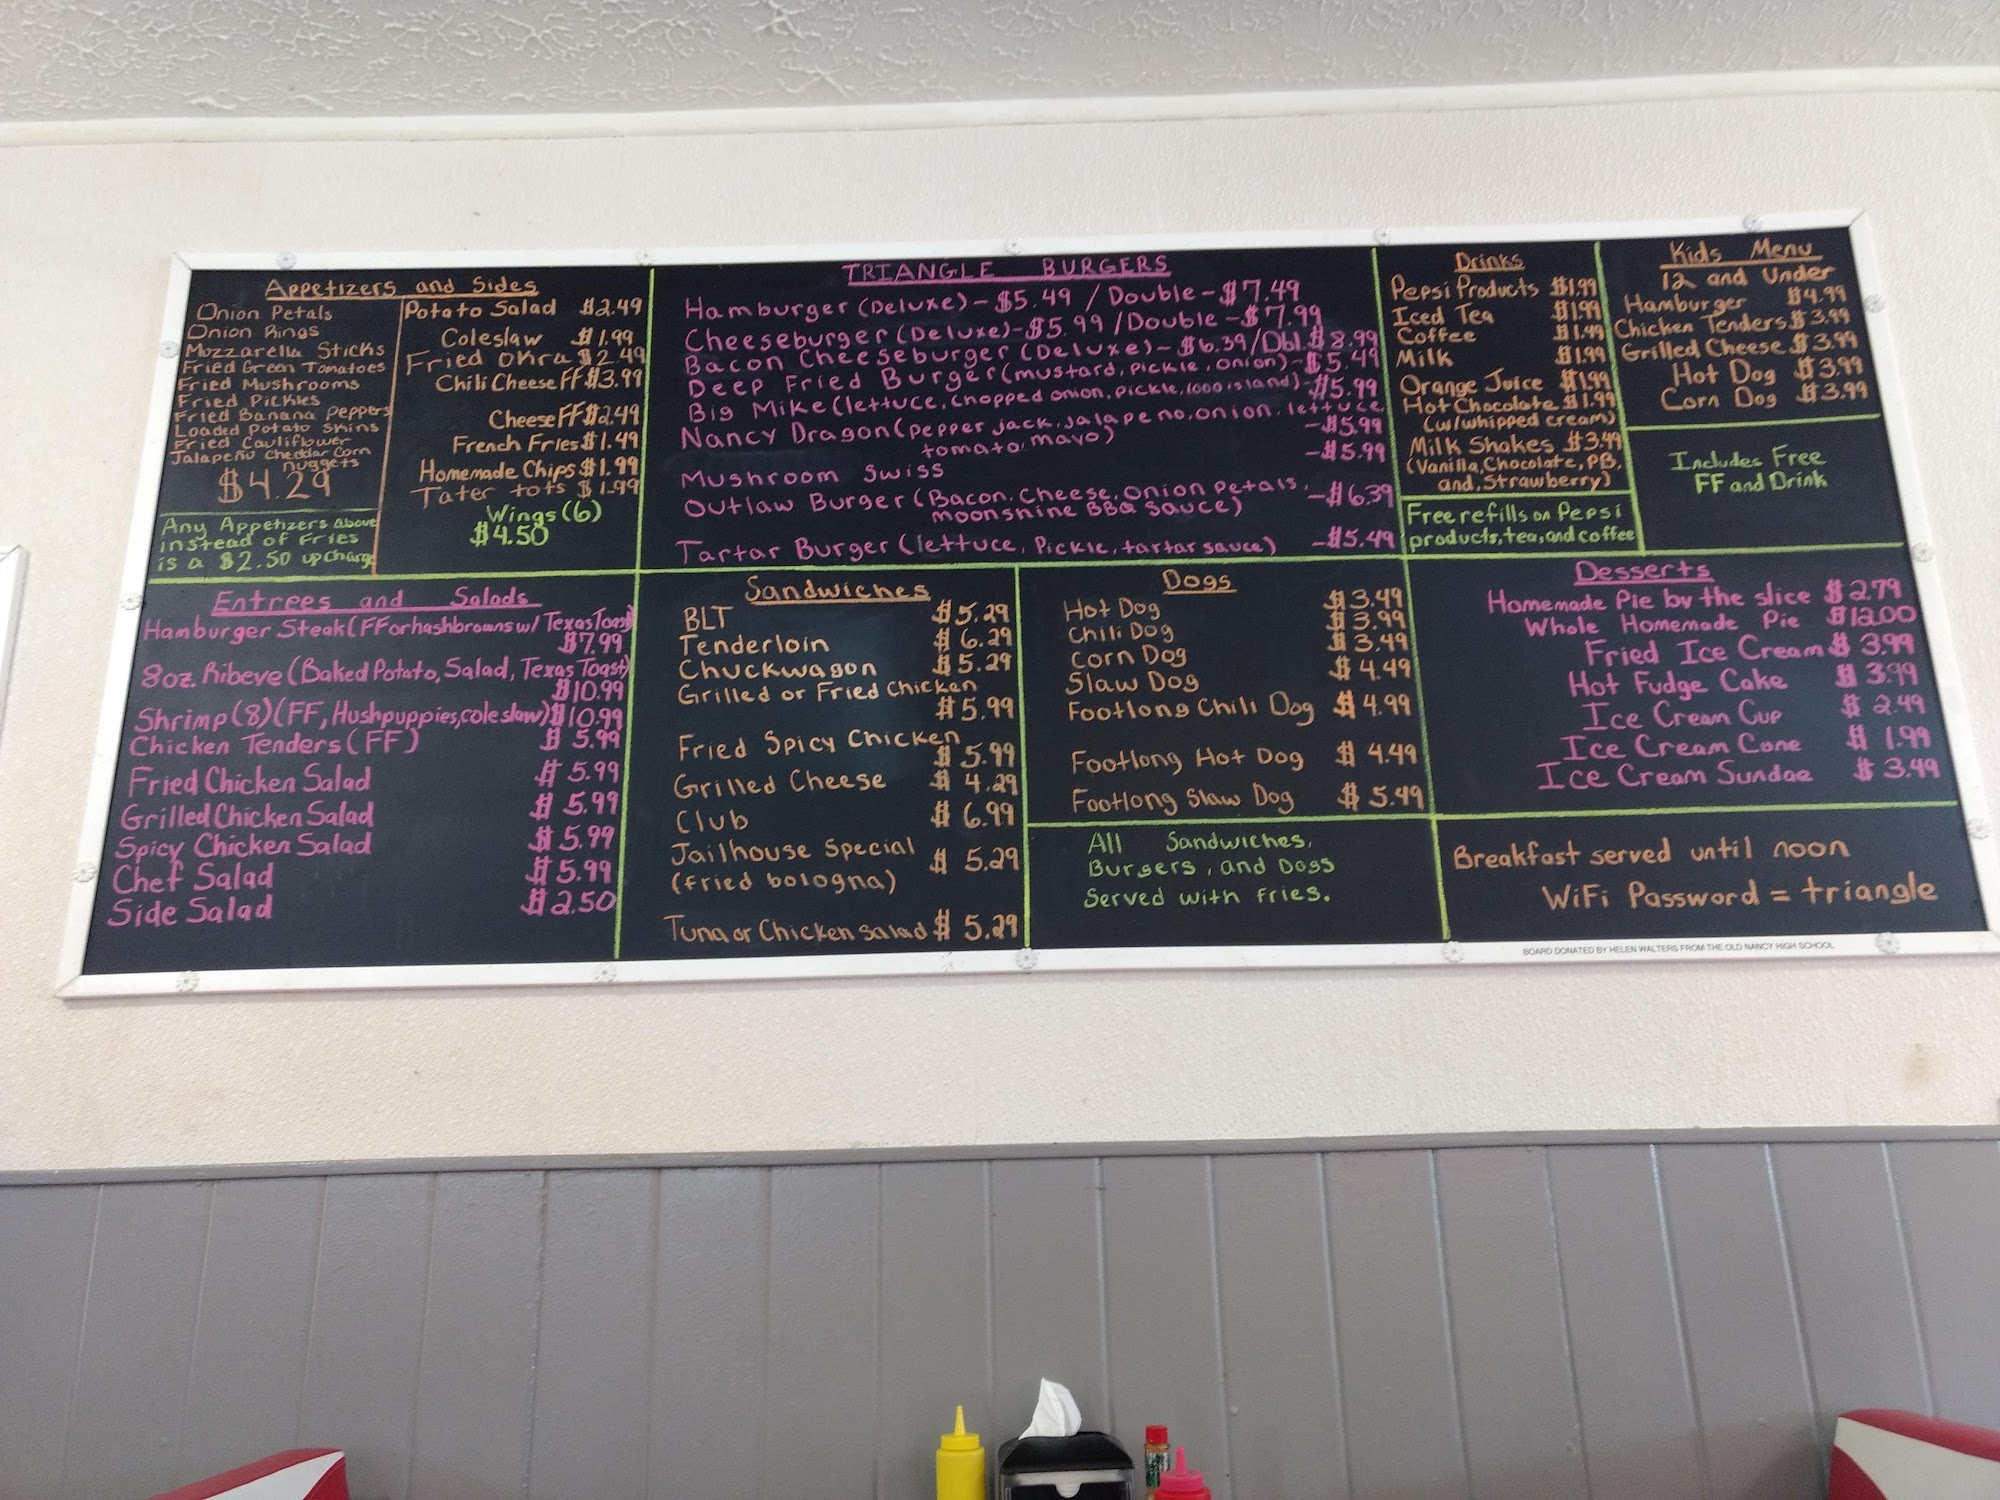 Appetizers and Sides
Onion Petals
Onion Rings
Mozzarella Sticks
Fried Green Tomatoes
Fried Mushrooms
Fried Pickles
Fried Banana Peppers
Loaded Potato Skins
Fried Cauliflower
Jalapeño Cheddar Corn
nuggets
$4.29
Any Appetizers above
instead of Fries
is a $2.50 upcharge
Potato Salad $2.49
Coleslaw $1.99
Fried Okra $2.49
Chili Cheese FF $3.99
Cheese FF $2.49
French Fries $1.49
Homemade Chips $1.99
Tater tots $1.99
Wings (6)
$4.50
TRIANGLE BURGERS
Hamburger (Deluxe) - $5.49 / Double - $7.49
Cheeseburger (Deluxe) - $5.99 / Double - $7.99
Bacon Cheeseburger (Deluxe) - $6.39/Dbl. $8.99
Deep Fried Burger (mustard, pickle, onion) - $5.49
Big Mike (lettuce, chopped onion, pickle, 1000 island) - $5.99
Nancy Dragon (pepper jack, jalapeno, onion, lettuce,
tomato, mayo) - $5.99
Mushroom Swiss - $5.99
Outlaw Burger (Bacon, Cheese, Onion Petals, - $6.39
moonshine BBQ Sauce)
Tartar Burger (lettuce, Pickle, tartar sauce) - $5.49
Drinks
Pepsi Products $1.99
Iced Tea $1.99
Coffee $1.49
Milk $1.99
Orange Juice $1.99
Hot Chocolate $1.99
(w/whipped cream)
Milk Shakes $3.99
(Vanilla, Chocolate, PB,
and, Strawberry)
Free refills on Pepsi
products, tea, and coffee
Kids Menu
12 and Under
Hamburger $4.99
Chicken Tenders $3.99
Grilled Cheese $3.99
Hot Dog $3.99
Corn Dog $3.99
Includes Free
FF and Drink
Entrees and Salads
Hamburger Steak (FF or hashbrowns w/ Texas Toast)
$7.99
8oz. Ribeye (Baked Potato, Salad, Texas Toast)
$10.99
Shrimp (8) (FF, Hushpuppies, coleslaw) $10.99
Chicken Tenders (FF) $5.99
Fried Chicken Salad $5.99
Grilled Chicken Salad $5.99
Spicy Chicken Salad $5.99
Chef Salad $5.99
Side Salad $2.50
Sandwiches
BLT $5.29
Tenderloin $6.29
Chuckwagon $5.29
Grilled or Fried Chicken
$5.99
Fried Spicy Chicken
$5.99
Grilled Cheese $4.29
Club $6.99
Jailhouse Special $5.29
(fried bologna)
Tuna or Chicken Salad $5.29
Dogs
Hot Dog $3.49
Chili Dog $3.99
Corn Dog $3.49
Slaw Dog $4.49
Footlong Chili Dog $4.99
Footlong Hot Dog $4.49
Footlong Slaw Dog $5.49
All Sandwiches,
Burgers, and Dogs
Served with fries.
Desserts
Homemade Pie by the slice $2.79
Whole Homemade Pie $12.00
Fried Ice Cream $3.99
Hot Fudge Cake $3.99
Ice Cream Cup $2.49
Ice Cream Cone $1.99
Ice Cream Sundae $3.49
Breakfast served until noon
WiFi Password = triangle
BOARD DONATED BY HELEN WALTERS FROM THE OLD NANCY HIGH SCHOOL